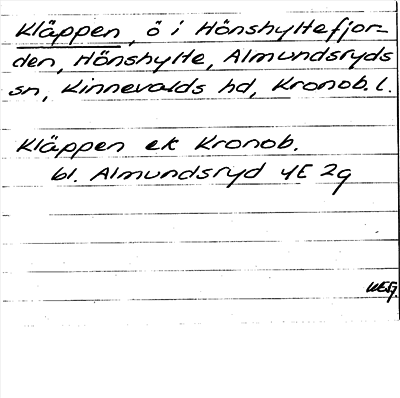 Kläppen, ö i Hönshyltefjor-
den, Hönshylte, Almundsryds
sn, Kinnevalds hd, Kronob. l.
Kläppen ek Kronob.
bl. Almundsryd 4E 2g